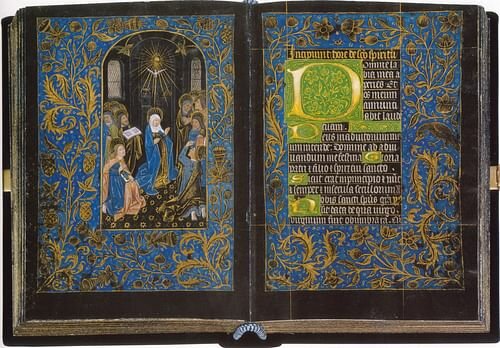 Incipiunt hore de sco spiritu
Domine la
bia mea a
peries Et
os meum
annunci
abit laud
tuam.
Deus in adiutorium
intende. Domine ad adiu
uandum me festina Gloria
patri et filio et spiritui sancto.
Sicut erat in principio et nunc
et semper et in secula seculorum
Nobis sancti spūs gra
sit data de qua uirgo
uirginum fuit obumbrata